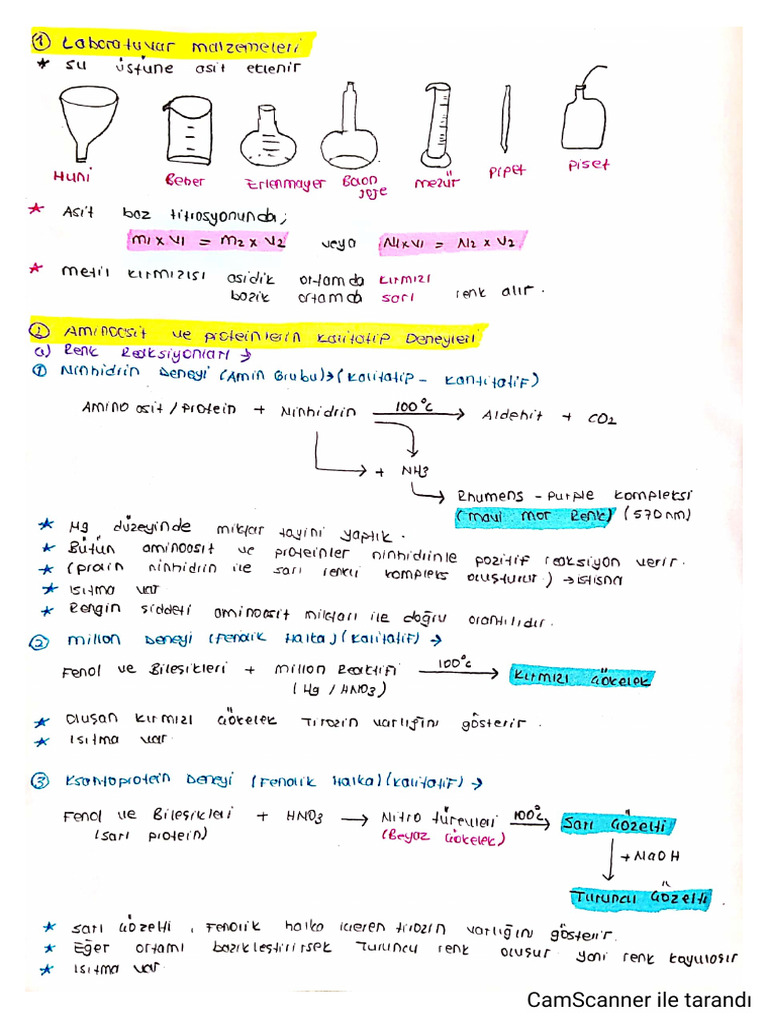 ① Laboratuvar malzemeleri
* su üstüne asit eklenir
Huni Beher Erlenmayer Balon joje mezür pipet piset
* Asit baz titrasyonunda;
M1 x V1 = M2 x V2 veya N1 x V1 = N2 x V2
* metil kırmızısı asidik ortamda kırmızı
bazik ortamda sarı renk alır.
② Aminoasit ve proteinlerin kalitatif Deneyleri
a) Renk Reaksiyonları →
① Ninhidrin Deneyi (Amin Grubu) → (kalitatif - kantitatif)
Amino asit / protein + Ninhidrin 100°C → Aldehit + CO2
+ NH3
Rhumens - purple kompleksi
(mavi mor Renk) (570 nm)
* Mg düzeyinde miktar tayini yaptık.
* Bütün aminoasit ve proteinler ninhidrinle pozitif reaksiyon verir.
* (prolin ninhidrin ile sarı renkli kompleks oluşturur.) → istisna
* ısıtma var
* Rengin şiddeti aminoasit miktarı ile doğru orantılıdır.
② millon Deneyi (Fenolik Halka) (kalitatif) →
Fenol ve Bileşikleri + millon Reaktifi 100°C → Kırmızı Çökelek
(Hg / HNO3)
* Oluşan kırmızı çökelek Tirozin varlığını gösterir.
* ısıtma var
③ Ksantoprotein Deneyi (Fenolik Halka) (kalitatif) →
Fenol ve Bileşikleri + HNO3 → Nitro türevleri 100°C → Sarı Çözelti
(sarı protein) (Beyaz Çökelek)
↓ + NaOH
Turuncu Çözelti
* sarı çözelti, Fenolik halka içeren tirozin varlığını gösterir.
* Eğer ortamı bazikleştirirsek Turuncu renk oluşur yani renk koyulaşır
* ısıtma var
CamScanner ile tarandı